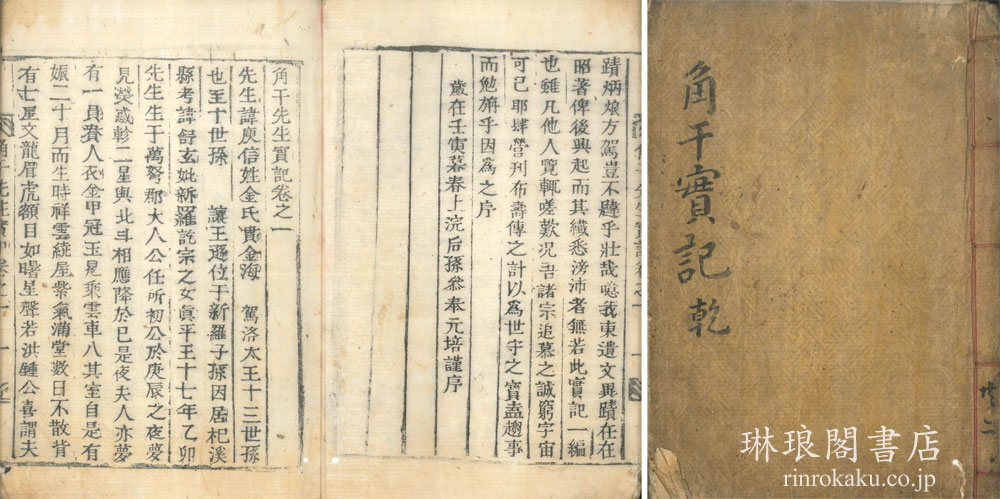 蹟炳烺方駕豈不韙乎壯哉噫我東遺文異蹟在在
昭著俾後興起而其纖悉滂沛者無若此實記一編
也雖凡他人覽輒嗟歎况吾諸宗追慕之誠窮宇宙
可已耶肆營刋布壽傳之計以為世守之寶盍趨事
而勉旃乎因為之序
歲在壬寅暮春上浣后孫叅奉元培謹序
角干先生實記卷之一
先生諱庾信姓金氏貫金海 駕洛太王十三世孫
也至十世孫 讓王遜位于新羅子孫因居杞溪
縣考諱舒玄妣新羅訖宗之女眞平王十七年乙卯
先生生于萬弩郡大人公任所初公於庚辰之夜夢
見熒惑軫二星與北斗相應降於己是夜夫人亦夢
有一員貴人衣金甲冠玉冕乘雲車入其室自是有
娠二十月而生時祥雲繞屋紫氣滿堂數日不散背
有七星文龍眉虎額目如曙星聲若洪鍾公喜謂夫
角干實記 乾
琳琅閣書店
rinrokaku.co.jp